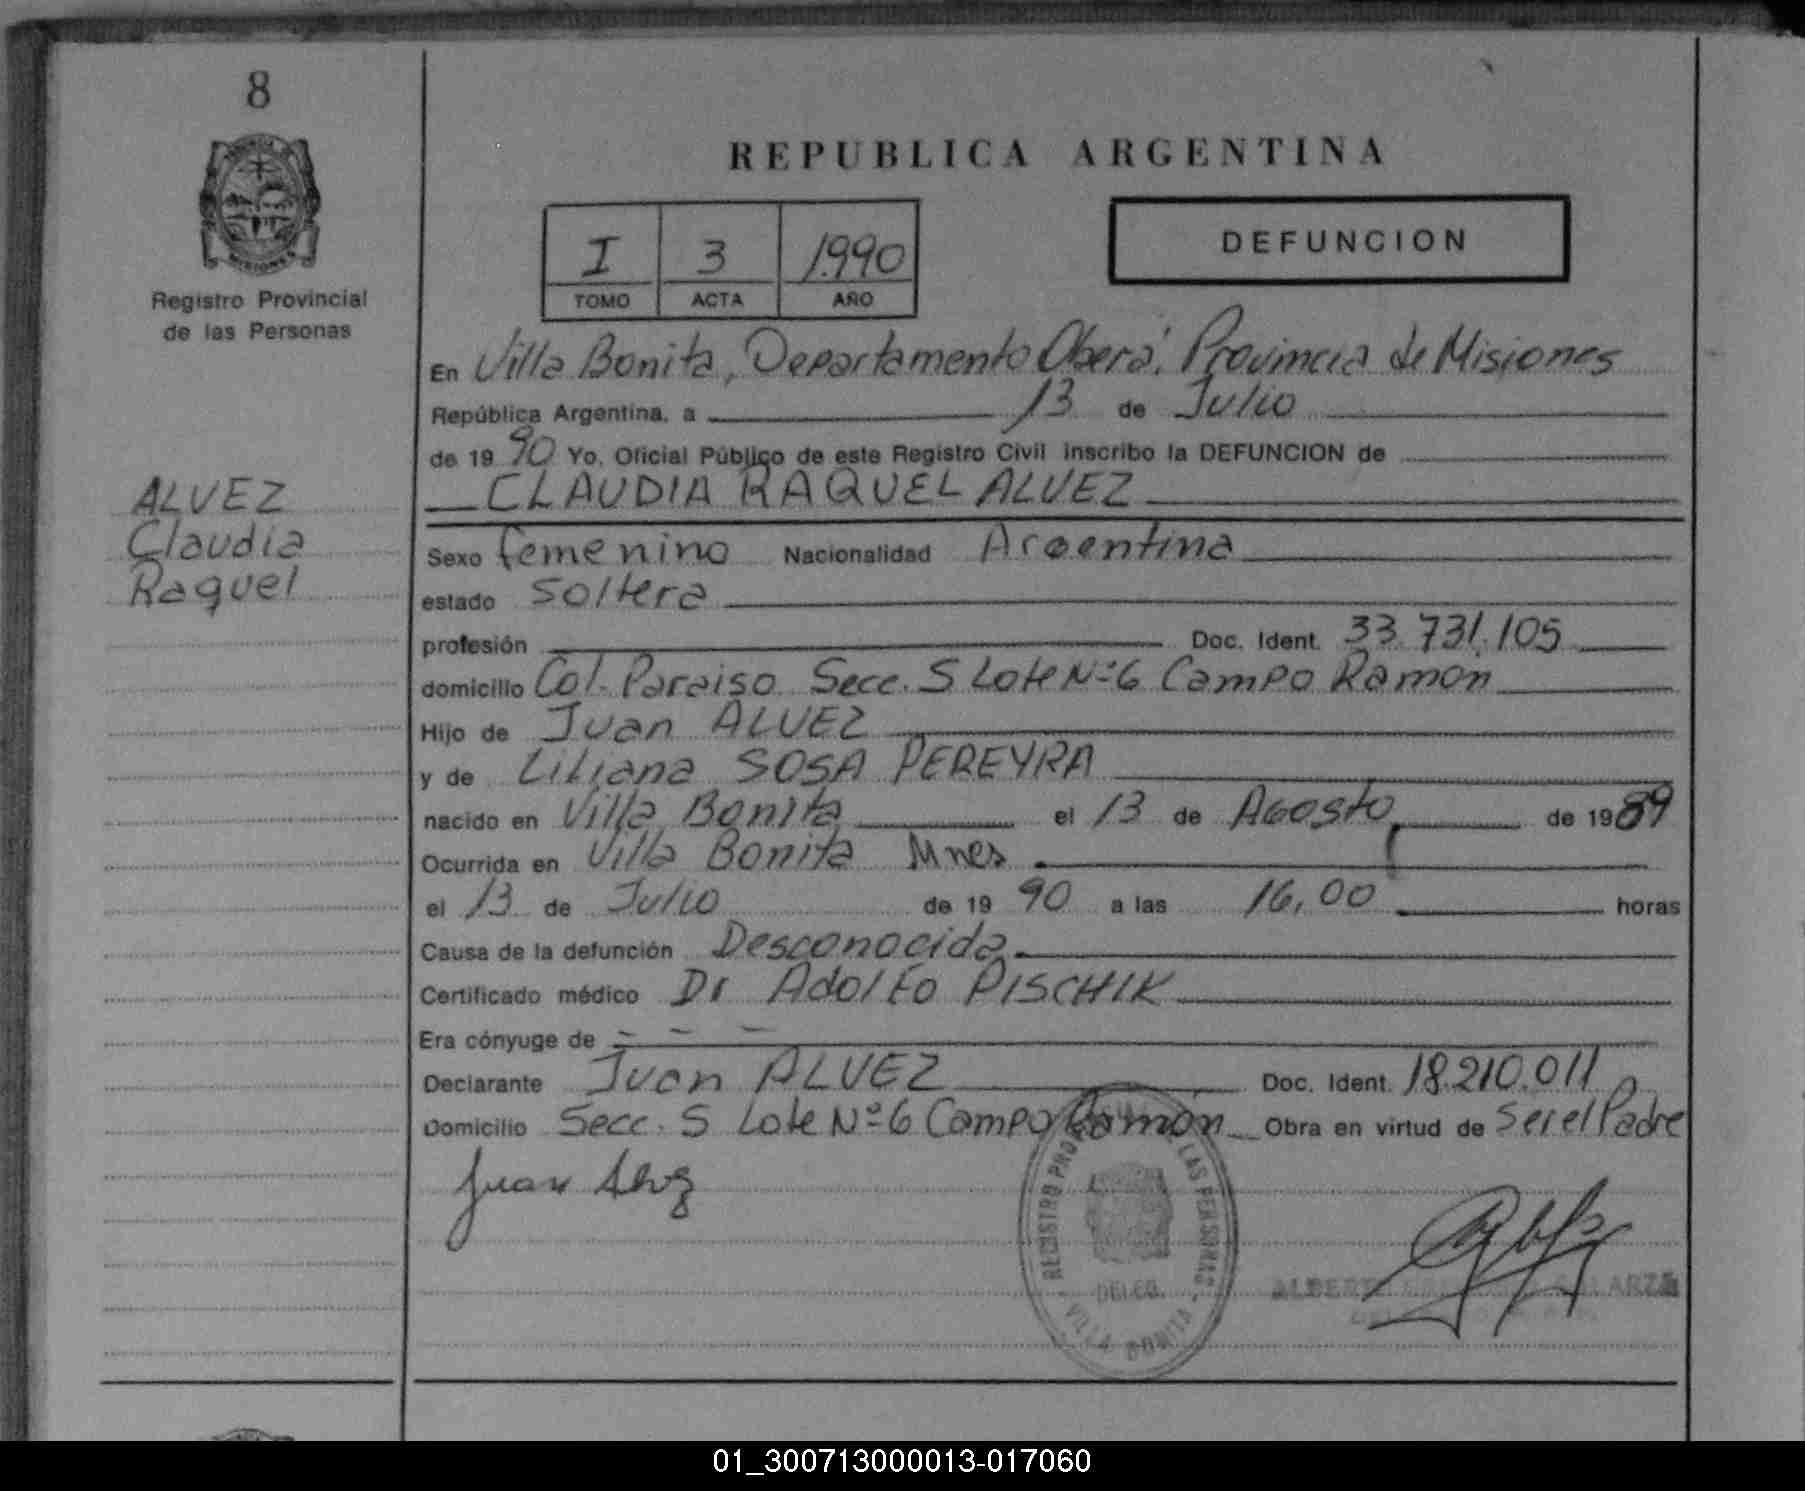 8
MISIONES
Registro Provincial
de las Personas
ALVEZ
Claudia
Raquel
REPUBLICA ARGENTINA
I 3 1.990
TOMO ACTA AÑO
DEFUNCION
En Villa Bonita, Departamento Oberá, Provincia de Misiones
República Argentina, a 13 de Julio
de 19 90 Yo, Oficial Público de este Registro Civil inscribo la DEFUNCION de
CLAUDIA RAQUEL ALVEZ
Sexo femenino Nacionalidad Argentina
estado soltera
profesión Doc. Ident. 33.731.105
domicilio Col. Paraiso Secc. S Lote Nº 6 Campo Ramon
Hijo de Juan ALVEZ
y de Liliana SOSA PEREYRA
nacido en Villa Bonita el 13 de Agosto de 1989
Ocurrida en Villa Bonita Mnes
el 13 de Julio de 19 90 a las 16,00 horas
Causa de la defunción Desconocida
Certificado médico Dr Adolfo PISCHIK
Era cónyuge de - - -
Declarante Juan ALVEZ Doc. Ident. 18.210.011
Domicilio Secc. S Lote Nº 6 Campo Ramón Obra en virtud de Ser el Padre
Juan Alvez
REGISTRO LAS PERSONAS
VILLA BONITA
01_300713000013-017060